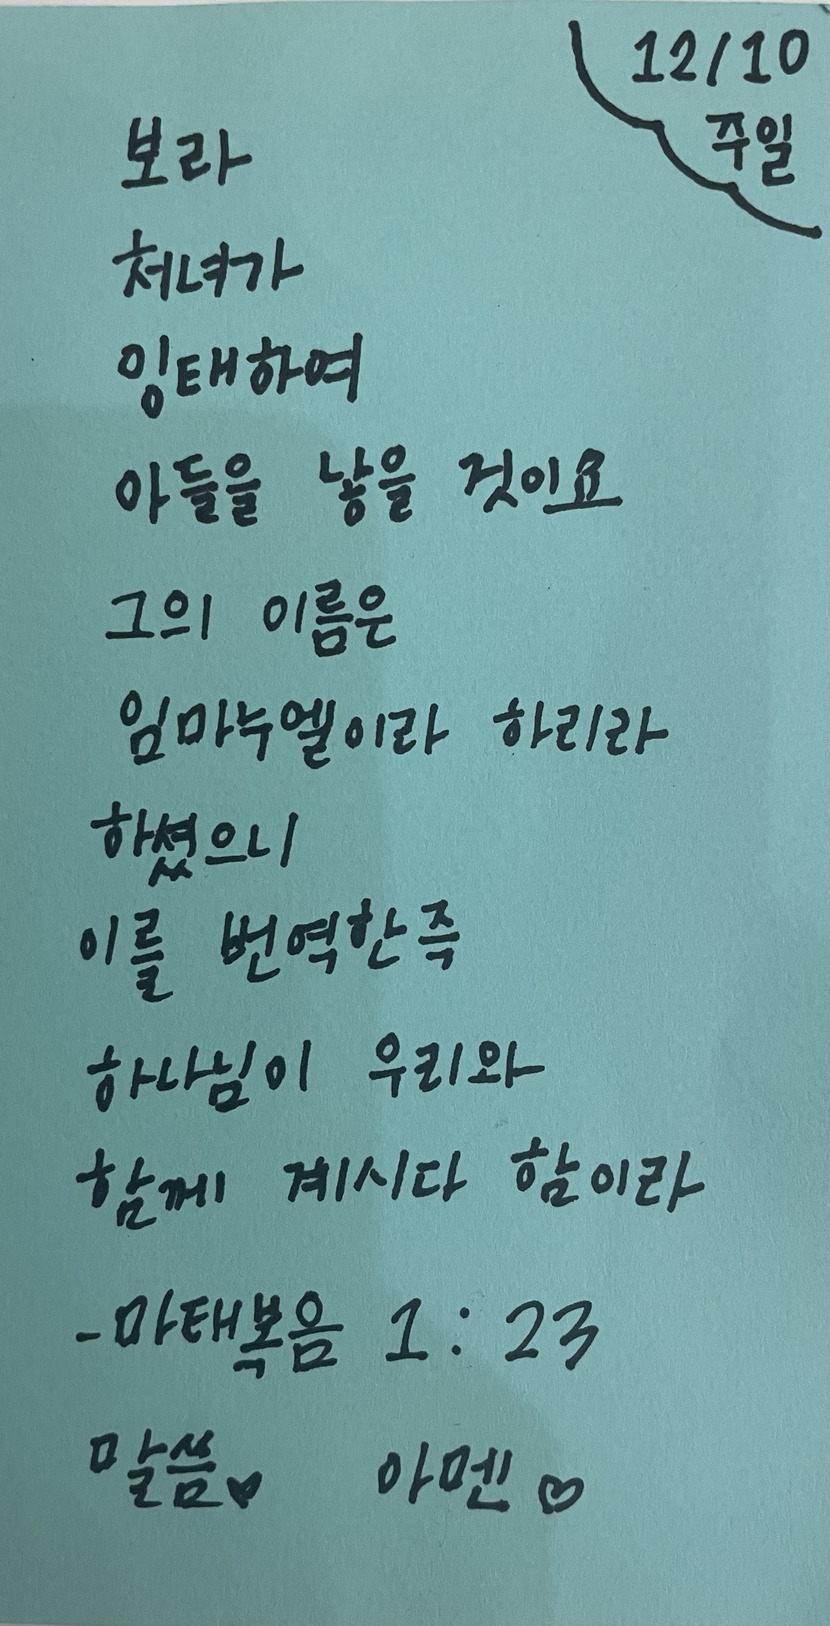 12/10
주일
보라
처녀가
잉태하여
아들을 낳을 것이요
그의 이름은
임마누엘이라 하리라
하셨으니
이를 번역한즉
하나님이 우리와
함께 계시다 함이라
-마태복음 1:23
말씀♥ 아멘♡